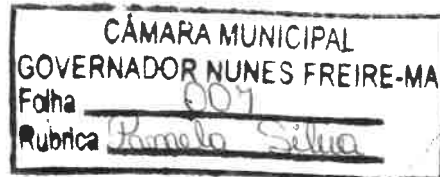 CÂMARA MUNICIPAL
GOVERNADOR NUNES FREIRE-MA
Folha 007
Rubrica Pamela Silva